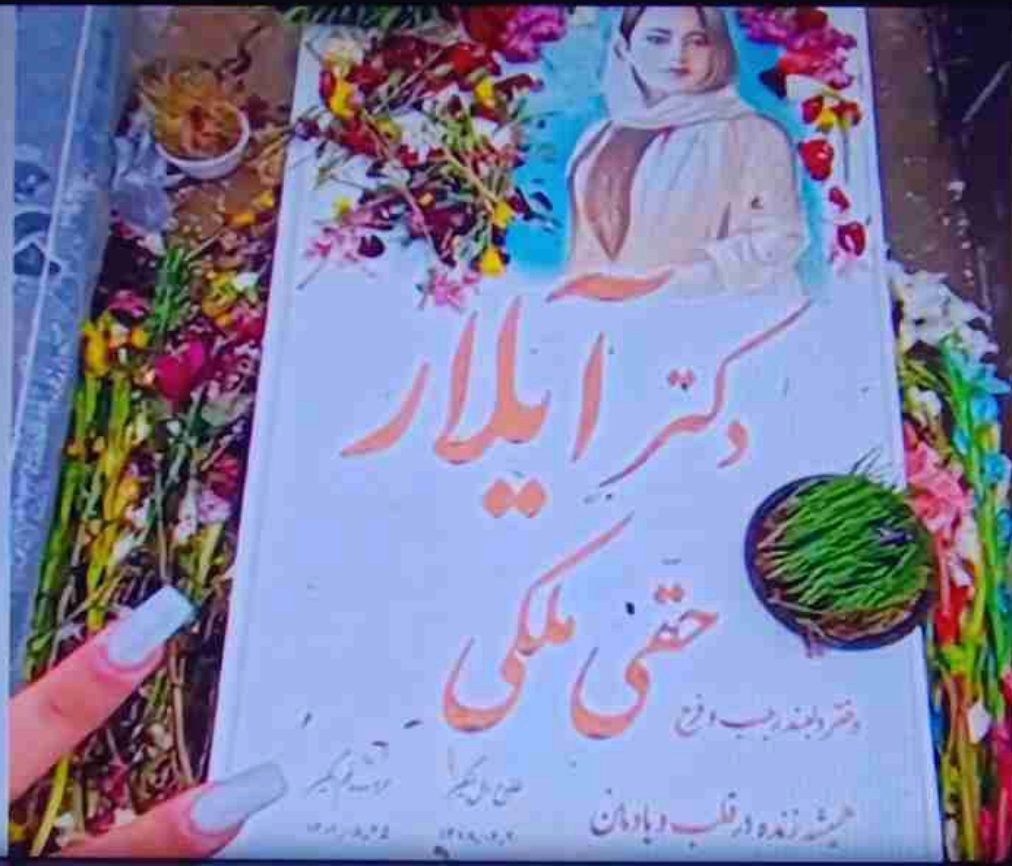 دکتر آیلار
حقی ملکی
دختر دلبند رجب و فرخ
همیشه زنده در قلب و یادمان